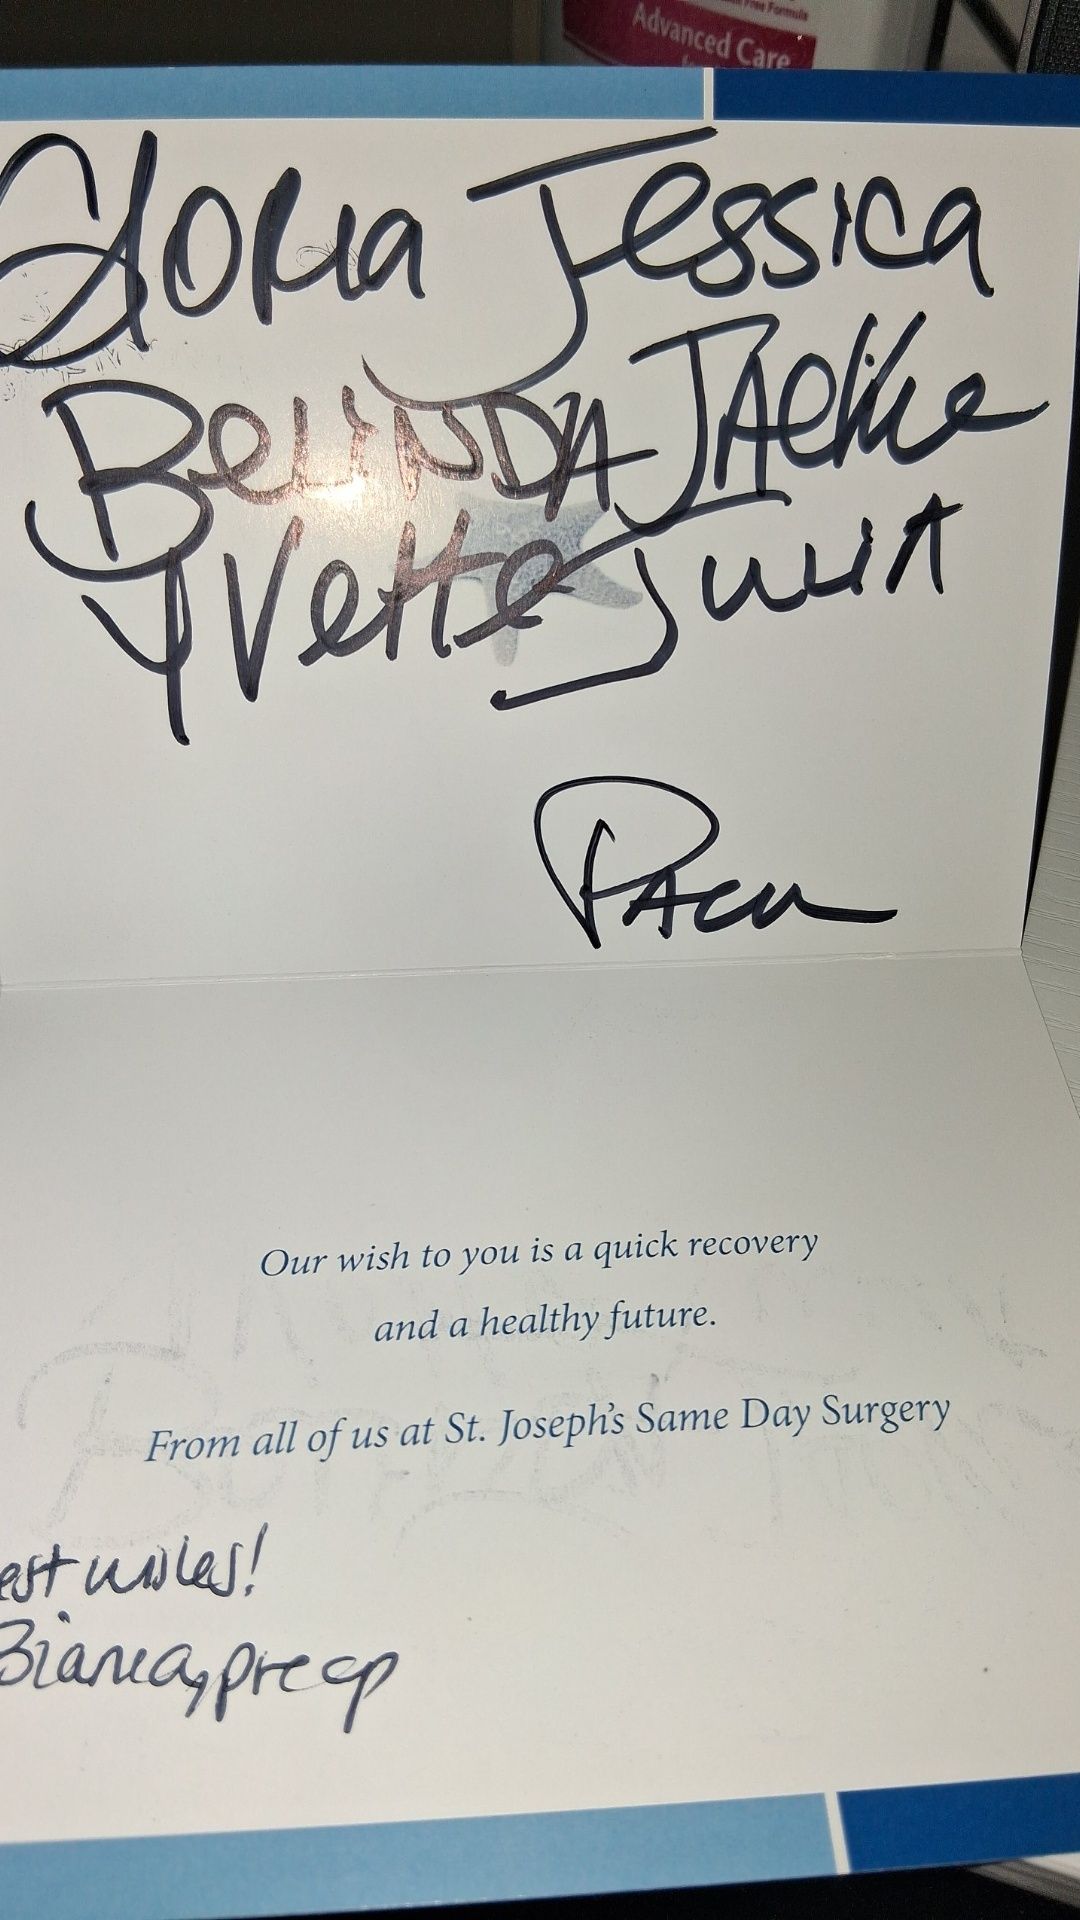 Free Formula
Advanced Care
Gloria Jessica
BeLiNDA JAckie
Yvette Julia
PACU
Our wish to you is a quick recovery
and a healthy future.
From all of us at St. Joseph's Same Day Surgery
est wishes!
Bianca, preop